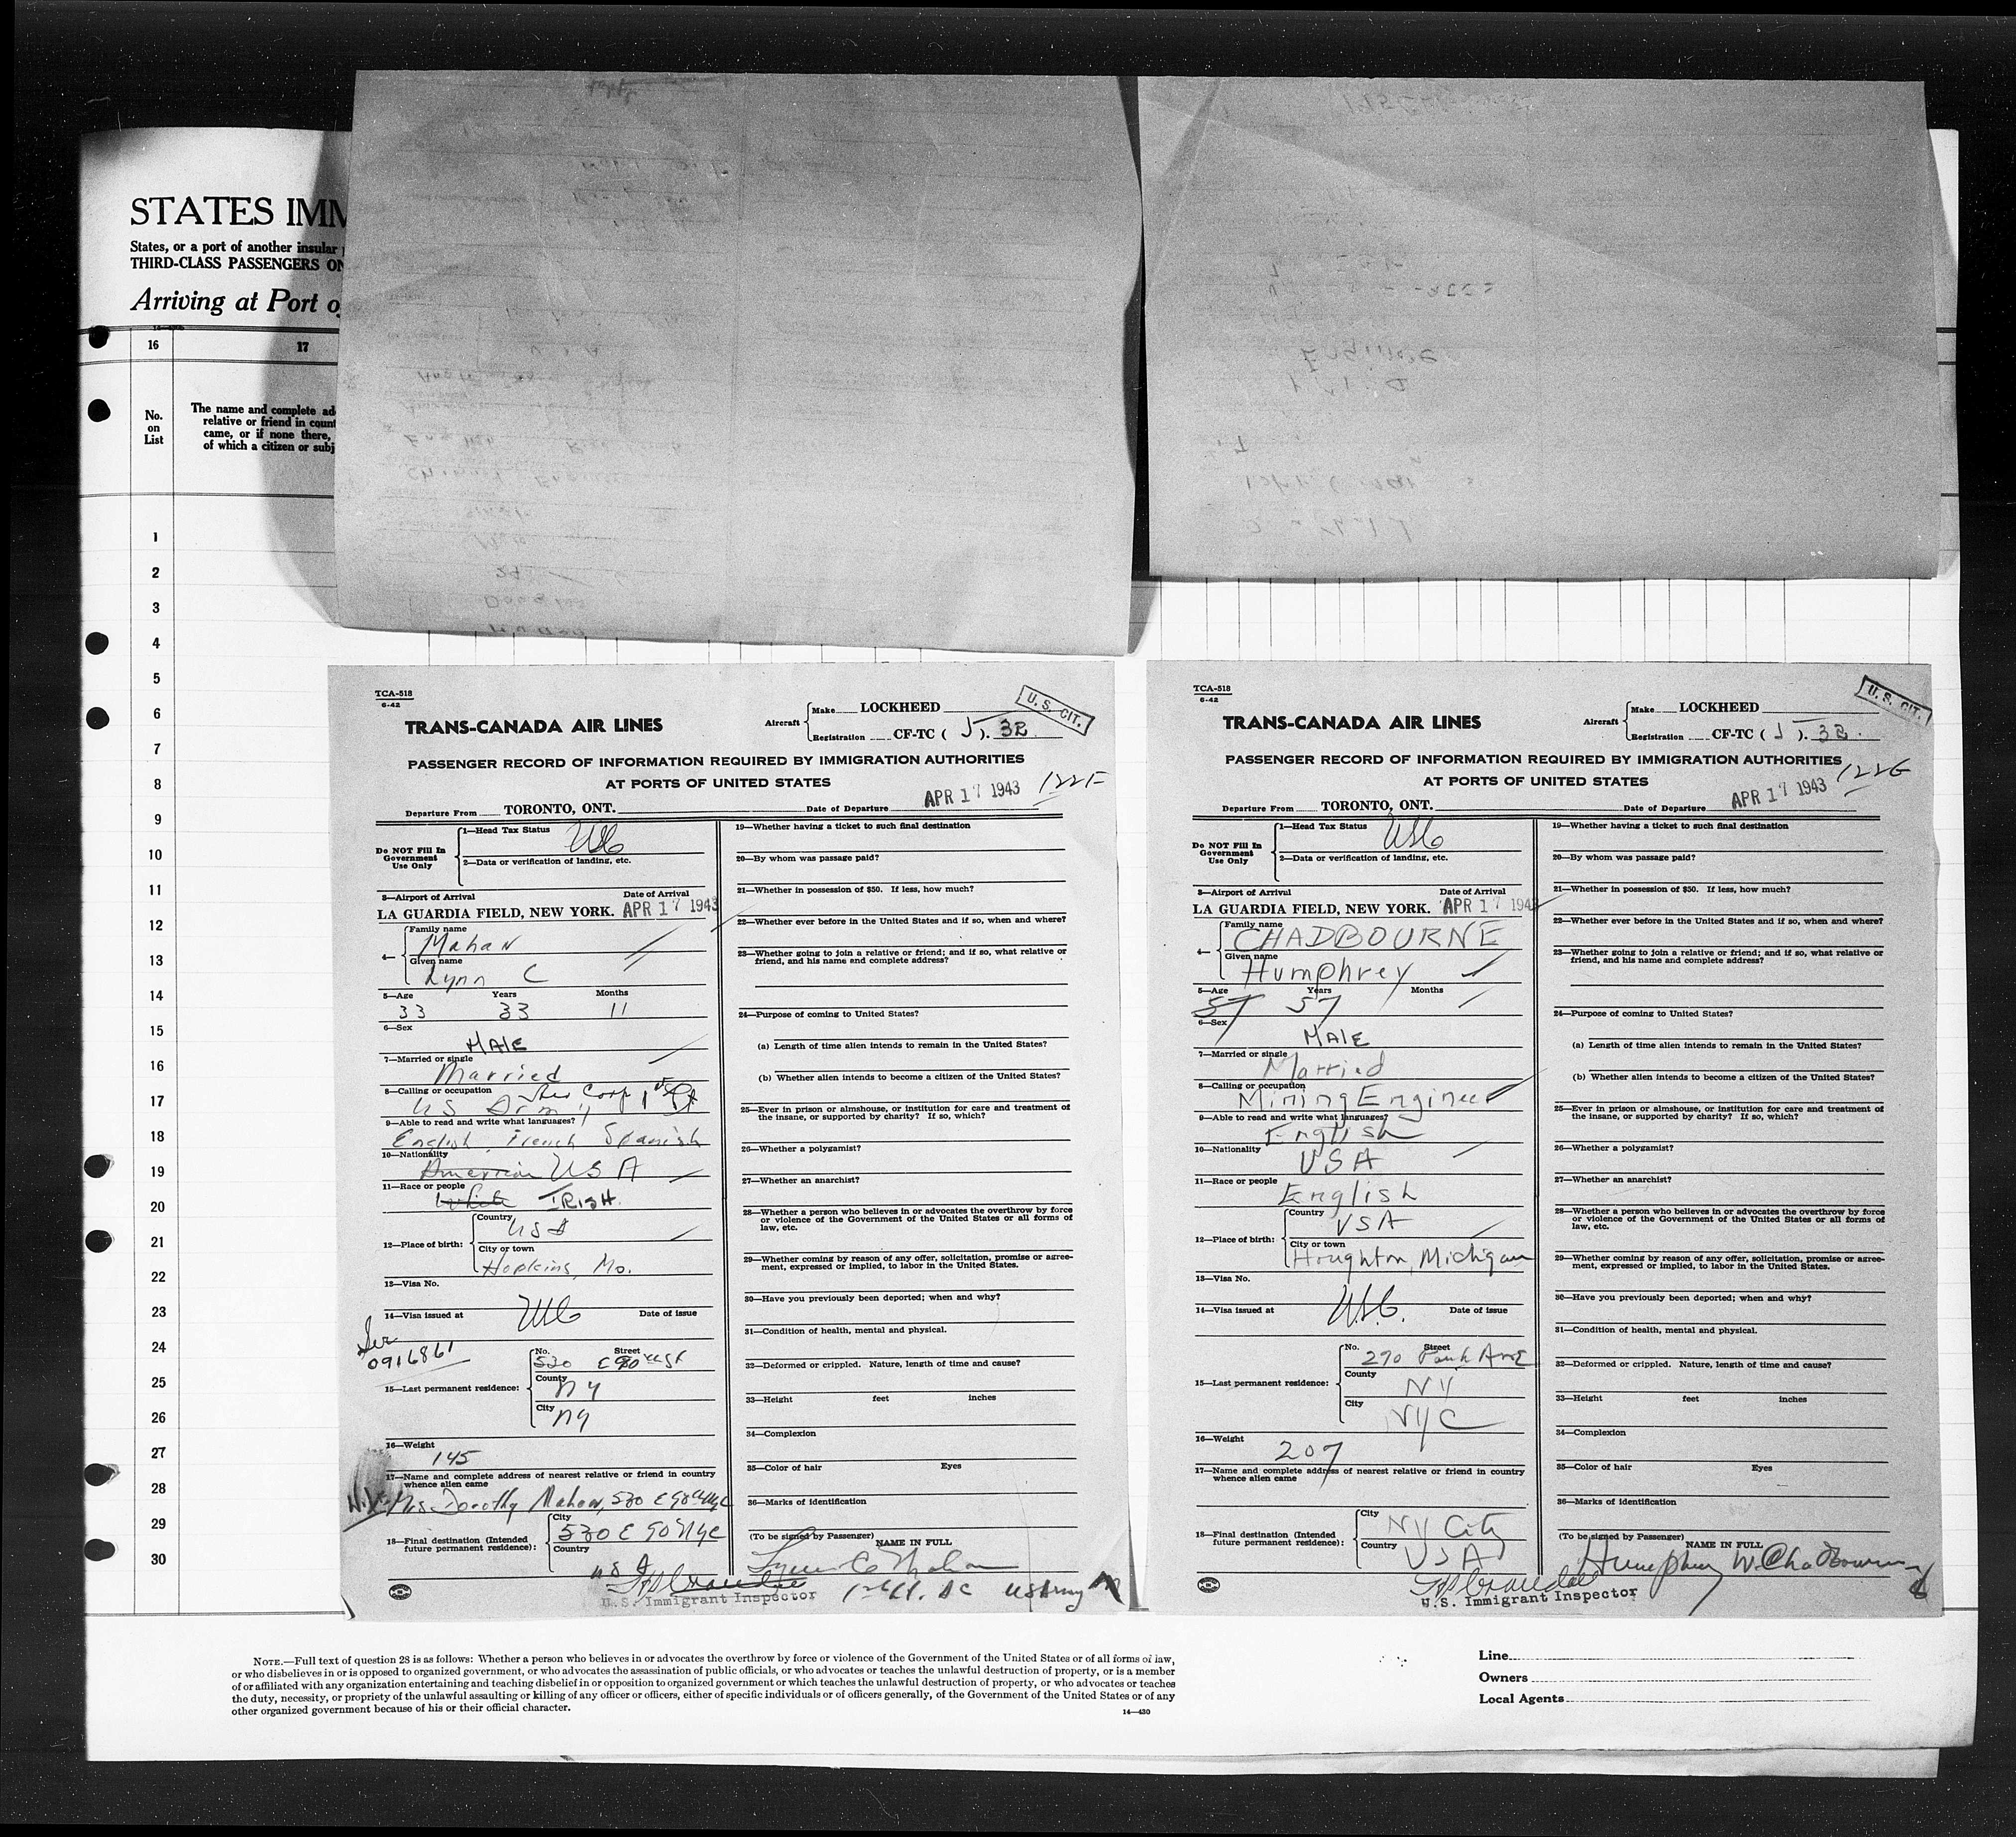 STATES IMM
States, or a port of another insular
THIRD-CLASS PASSENGERS ON
Arriving at Port o
16 17
No. on List
The name and complete ad
relative or friend in count
came, or if none there,
of which a citizen or subj
1
2
3
4
5
6
7
8
9
10
11
12
13
14
15
16
17
18
19
20
21
22
23
24
25
26
27
28
29
30
TCA-518
6-42
TRANS-CANADA AIR LINES
Aircraft
Make LOCKHEED
Registration CF-TC ( J ). 32
U. S. CIT.
PASSENGER RECORD OF INFORMATION REQUIRED BY IMMIGRATION AUTHORITIES
AT PORTS OF UNITED STATES
122F
Departure From TORONTO, ONT. Date of Departure APR 17 1943
Do NOT Fill In
Government
Use Only
1—Head Tax Status USC
2—Data or verification of landing, etc.
3—Airport of Arrival Date of Arrival
LA GUARDIA FIELD, NEW YORK. APR 17 1943
4—
Family name
Mahan
Given name
Lynn C
5—Age Years Months
33 33 11
6—Sex
MALE
7—Married or single
Married
8—Calling or occupation
US Army
9—Able to read and write what languages?
English French Spanish
10—Nationality
American USA
11—Race or people
White IRISH.
12—Place of birth:
Country
USA
City or town
Hopkins, Mo.
13—Visa No.
14—Visa issued at USC Date of issue
Ser
0916861
15—Last permanent residence:
No. Street
530 E 90
County
NY
City
NY
16—Weight
145
17—Name and complete address of nearest relative or friend in country
whence alien came
Mrs Dorothy Mahan, 530 E 90
18—Final destination (Intended
future permanent residence):
City
530 E 90 NYC
Country
USA
U.S. Immigrant Inspector
19—Whether having a ticket to such final destination
20—By whom was passage paid?
21—Whether in possession of $50. If less, how much?
22—Whether ever before in the United States and if so, when and where?
23—Whether going to join a relative or friend; and if so, what relative or
friend, and his name and complete address?
24—Purpose of coming to United States?
(a) Length of time alien intends to remain in the United States?
(b) Whether alien intends to become a citizen of the United States?
25—Ever in prison or almshouse, or institution for care and treatment of
the insane, or supported by charity? If so, which?
26—Whether a polygamist?
27—Whether an anarchist?
28—Whether a person who believes in or advocates the overthrow by force
or violence of the Government of the United States or all forms of
law, etc.
29—Whether coming by reason of any offer, solicitation, promise or agree-
ment, expressed or implied, to labor in the United States.
30—Have you previously been deported; when and why?
31—Condition of health, mental and physical.
32—Deformed or crippled. Nature, length of time and cause?
33—Height feet inches
34—Complexion
35—Color of hair Eyes
36—Marks of identification
(To be signed by Passenger)
NAME IN FULL
Lynn C Mahan
US Army
TCA-518
6-42
TRANS-CANADA AIR LINES
Aircraft
Make LOCKHEED
Registration CF-TC ( J ). 32.
U. S. CIT.
PASSENGER RECORD OF INFORMATION REQUIRED BY IMMIGRATION AUTHORITIES
AT PORTS OF UNITED STATES
122G
Departure From TORONTO, ONT. Date of Departure APR 17 1943
Do NOT Fill In
Government
Use Only
1—Head Tax Status USC
2—Data or verification of landing, etc.
3—Airport of Arrival Date of Arrival
LA GUARDIA FIELD, NEW YORK. APR 17 194
4—
Family name
CHADBOURNE
Given name
Humphrey
5—Age Years Months
57 57
6—Sex
MALE
7—Married or single
Married
8—Calling or occupation
Mining Engineer
9—Able to read and write what languages?
English
10—Nationality
USA
11—Race or people
English
12—Place of birth:
Country
USA
City or town
Houghton, Michigan
13—Visa No.
14—Visa issued at U.S.C. Date of issue
15—Last permanent residence:
No. Street
270 Park Ave
County
NY
City
NYC
16—Weight
207
17—Name and complete address of nearest relative or friend in country
whence alien came
18—Final destination (Intended
future permanent residence):
City
NY City
Country
USA
U.S. Immigrant Inspector
19—Whether having a ticket to such final destination
20—By whom was passage paid?
21—Whether in possession of $50. If less, how much?
22—Whether ever before in the United States and if so, when and where?
23—Whether going to join a relative or friend; and if so, what relative or
friend, and his name and complete address?
24—Purpose of coming to United States?
(a) Length of time alien intends to remain in the United States?
(b) Whether alien intends to become a citizen of the United States?
25—Ever in prison or almshouse, or institution for care and treatment of
the insane, or supported by charity? If so, which?
26—Whether a polygamist?
27—Whether an anarchist?
28—Whether a person who believes in or advocates the overthrow by force
or violence of the Government of the United States or all forms of
law, etc.
29—Whether coming by reason of any offer, solicitation, promise or agree-
ment, expressed or implied, to labor in the United States.
30—Have you previously been deported; when and why?
31—Condition of health, mental and physical.
32—Deformed or crippled. Nature, length of time and cause?
33—Height feet inches
34—Complexion
35—Color of hair Eyes
36—Marks of identification
(To be signed by Passenger)
NAME IN FULL
Humphrey W. Chadbourne
NOTE.—Full text of question 28 is as follows: Whether a person who believes in or advocates the overthrow by force or violence of the Government of the United States or of all forms of law,
or who disbelieves in or is opposed to organized government, or who advocates the assassination of public officials, or who advocates or teaches the unlawful destruction of property, or is a member
of or affiliated with any organization entertaining and teaching disbelief in or opposition to organized government or which teaches the unlawful destruction of property, or who advocates or teaches
the duty, necessity, or propriety of the unlawful assaulting or killing of any officer or officers, either of specific individuals or of officers generally, of the Government of the United States or of any
other organized government because of his or their official character.
14—430
Line
Owners
Local Agents